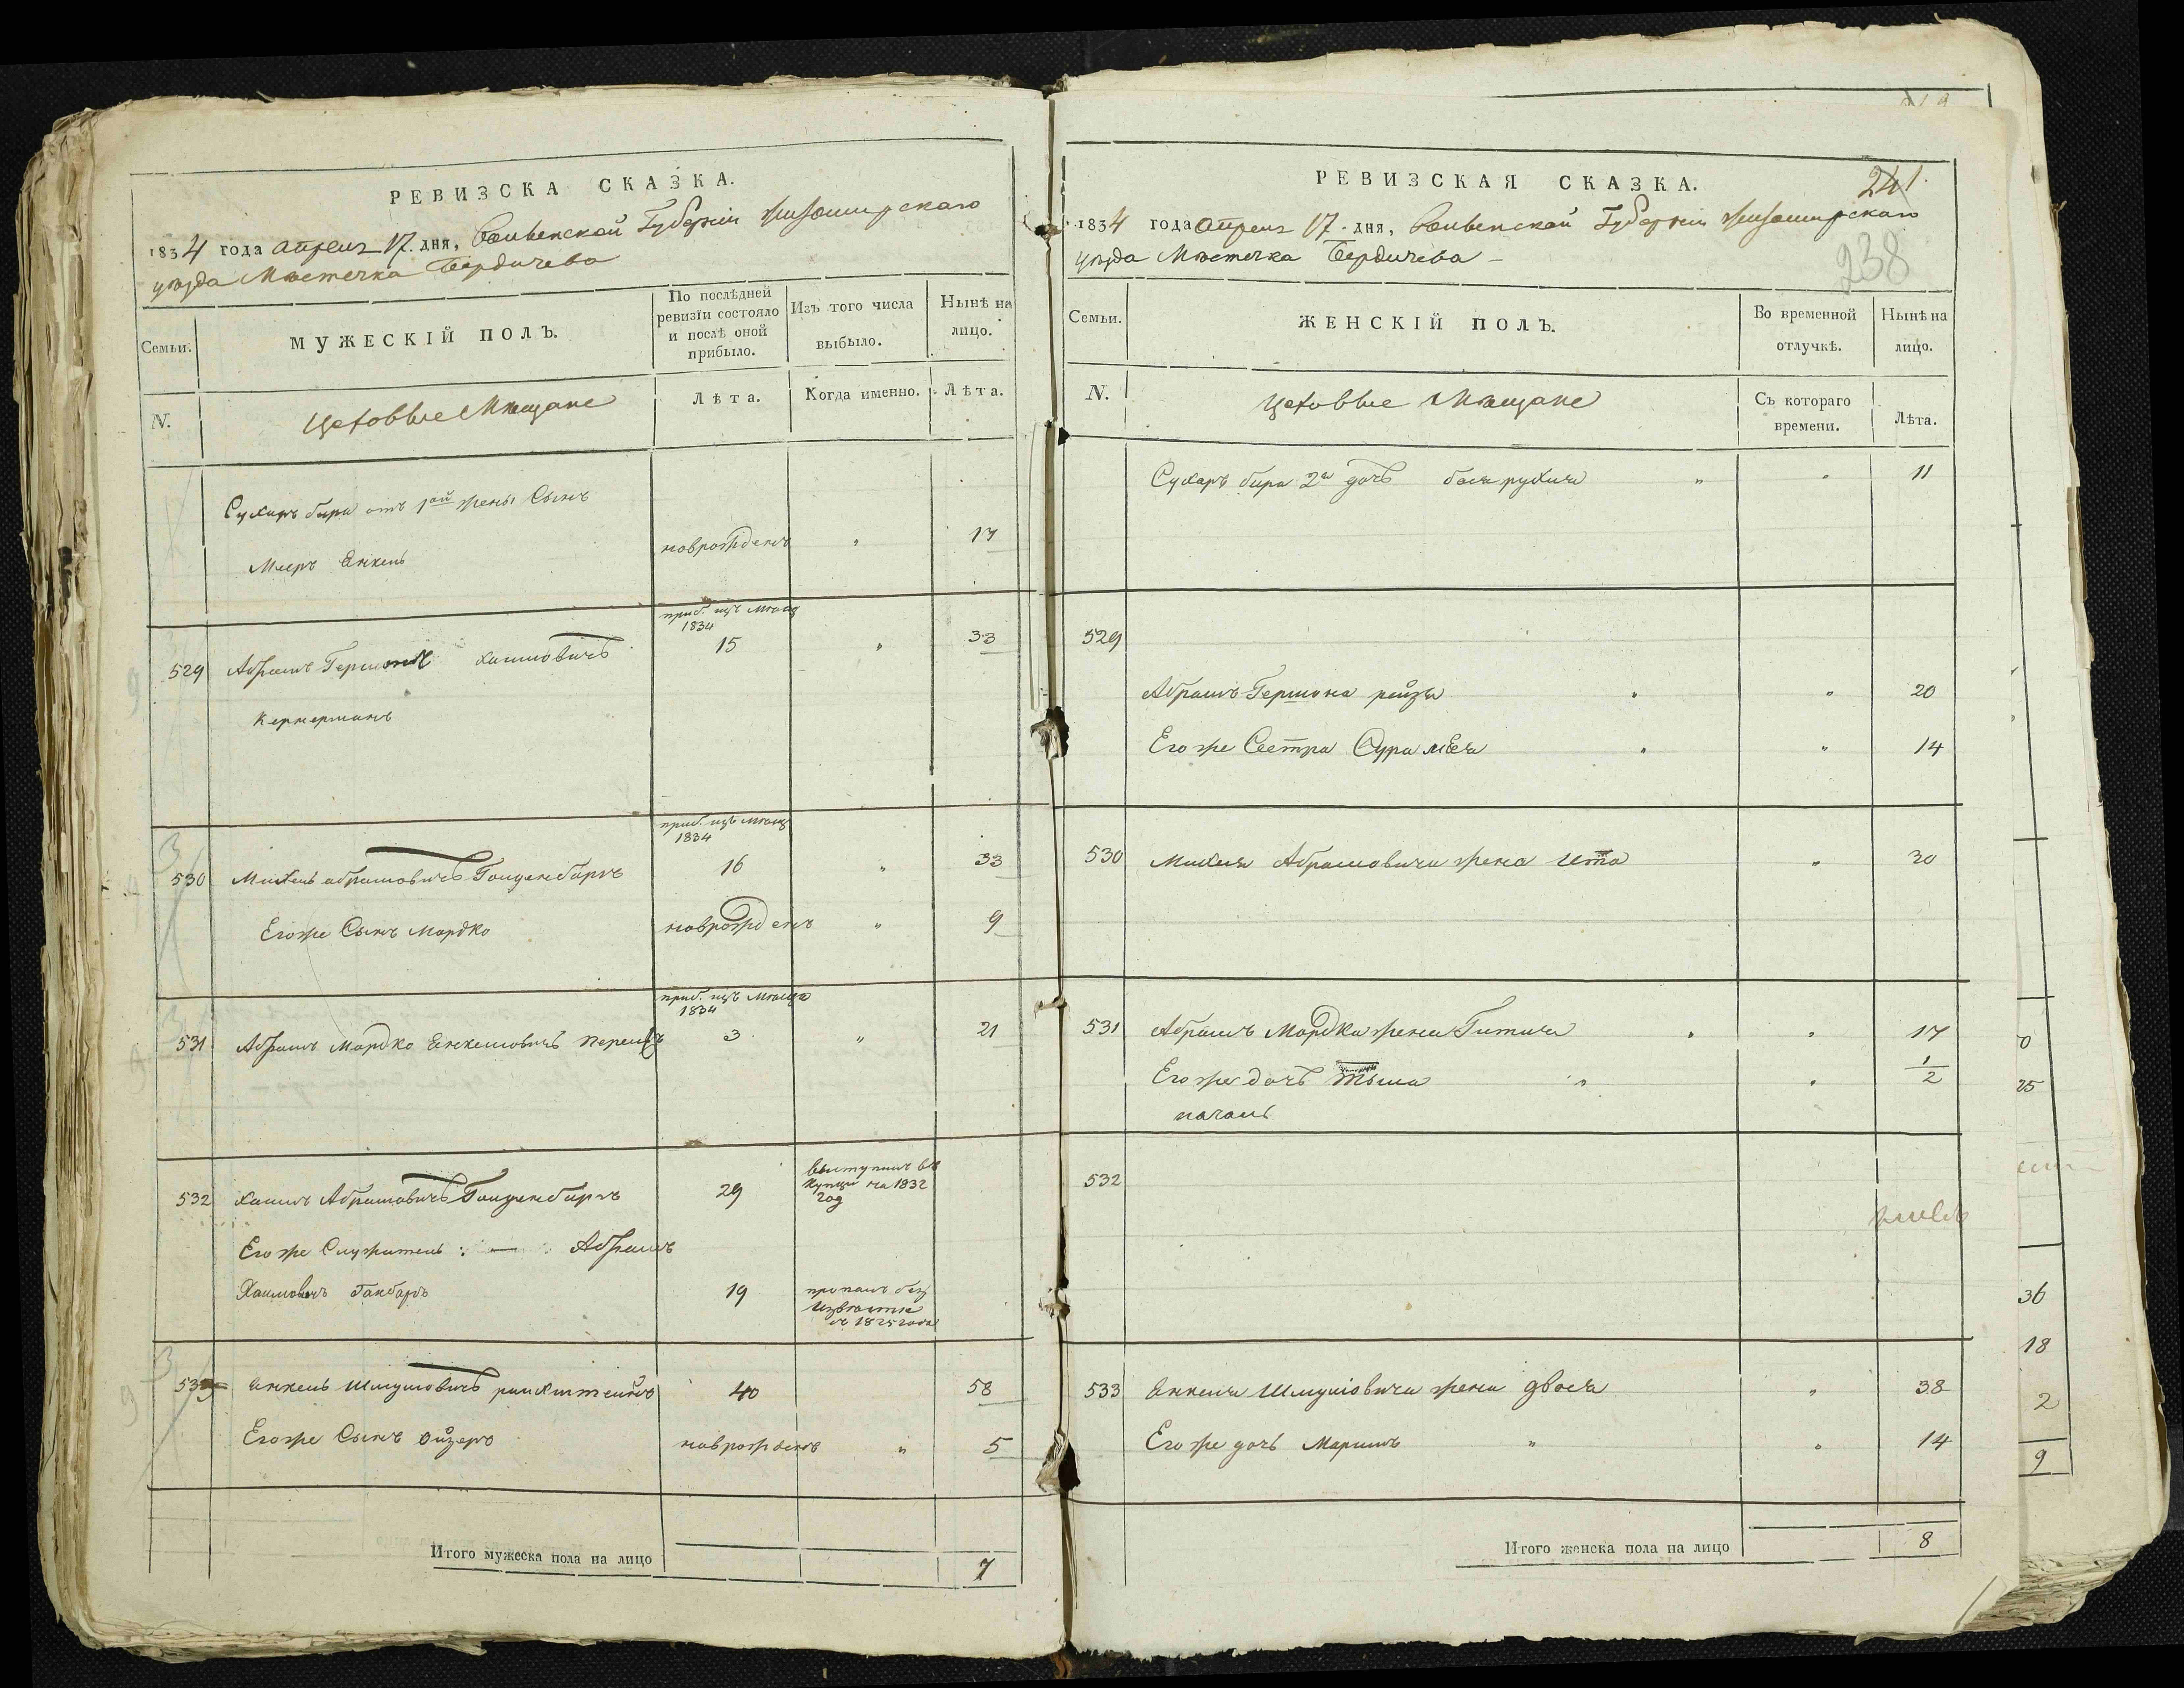 РЕВИЗСКА СКАЗКА.
1834 года апреля 17. дня, Волынской Губернии Житомирскаго
уѣзда Мѣстечка Бердичева
Семьи.
МУЖЕСКІЙ ПОЛЪ.
По послѣдней ревизіи состояло и послѣ оной прибыло.
Изъ того числа выбыло.
Нынѣ на лицо.
N.
Цеховые Мещане
Лѣта.
Когда именно.
Лѣта.
Сухаръ бера отъ 1ой жены Сынъ
Мееръ Енкель новорожденъ " 17
приб. изъ Мѣщ
1834
529 Абрамъ Гершонъ Хаимовичъ 15 " 33
Кернерманъ
приб. изъ Мѣщ
1834
530 Михель абрамовичъ Гольденбаргъ 16 " 33
Его же Сынъ Мордко новорожденъ " 9
приб. изъ Мѣща
1834
531 Абрамъ Мордко Енкелювичъ 3 " 21
532 Хаимъ Абрамовичъ Гольденбаргъ 29 выступилъ въ Купцы на 1832 год
Его же Служитель : — : Абрамъ
Хаимовичъ 19 пропалъ без Извѣстно съ 1825 года
533 Енкель Шмулювичъ 40 58
Его же Сынъ Ойзеръ новорожденъ " 5
Итого мужеска пола на лицо 7
РЕВИЗСКАЯ СКАЗКА.
241
1834 года апреля 17. дня, Волынской Губернии Житомирскаго
уѣзда Мѣстечка Бердичева -
238
Семьи.
ЖЕНСКІЙ ПОЛЪ.
Во временной отлучкѣ.
Нынѣ на лицо.
N.
Цеховые Мещане
Съ котораго времени.
Лѣта.
Сухаръ бера 2я дочь бася рухля " " 11
529
Абрамъ Гершона рейзя " " 20
Его же Сестра Сура лея " " 14
530 Михля Абрамовича жена Ита " 30
531 Абрамъ Мордка жена Гитля " " 17
Его же дочь " " 1/2
532
533 Енкеля Шмулювича жена двося " 38
Его же дочь Марьимъ " " 14
Итого женска пола на лицо 8